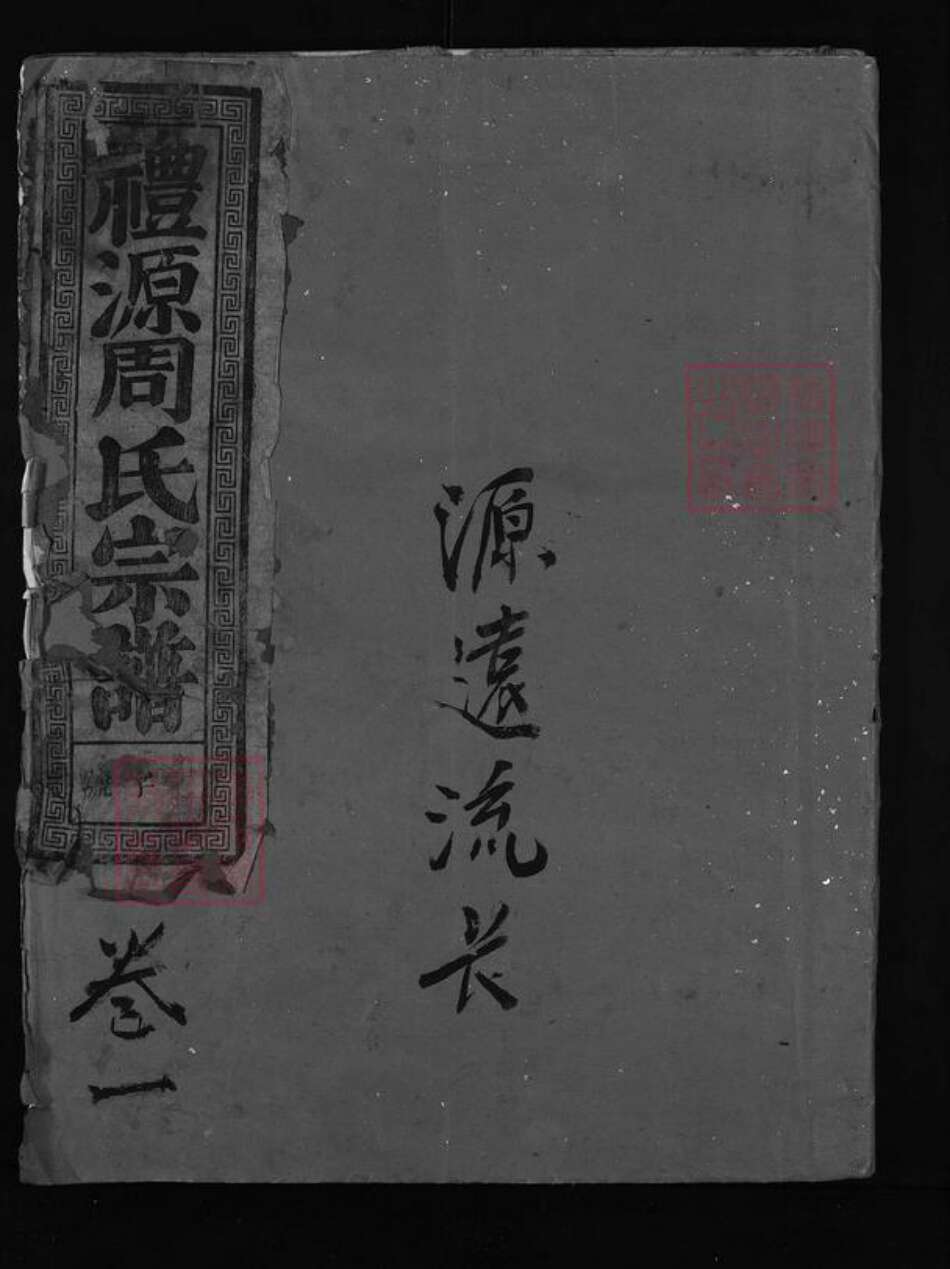 源遠流长
禮源周氏宗譜
號
卷一